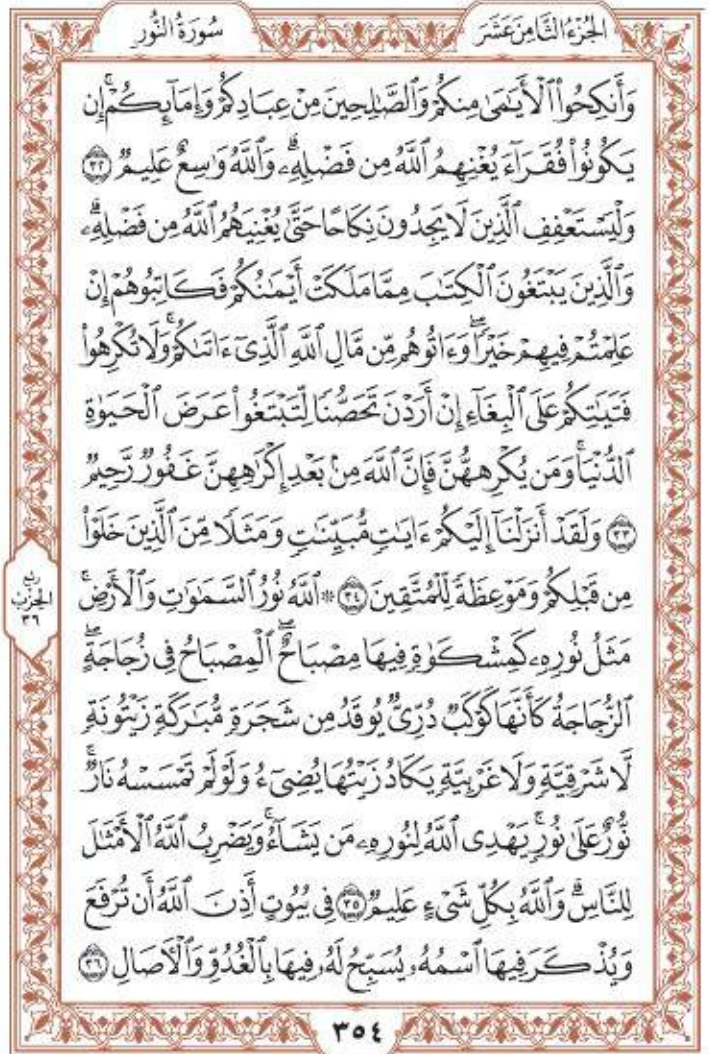 الجُزْءُ الثَّامِنَ عَشَرَ
سُورَةُ النُّور
وَأَنكِحُوا۟ ٱلْأَيَـٰمَىٰ مِنكُمْ وَٱلصَّـٰلِحِينَ مِنْ عِبَادِكُمْ وَإِمَآئِكُمْ ۚ إِن
يَكُونُوا۟ فُقَرَآءَ يُغْنِهِمُ ٱللَّهُ مِن فَضْلِهِۦ ۗ وَٱللَّهُ وَٰسِعٌ عَلِيمٌ ٣٢
وَلْيَسْتَعْفِفِ ٱلَّذِينَ لَا يَجِدُونَ نِكَاحًا حَتَّىٰ يُغْنِيَهُمُ ٱللَّهُ مِن فَضْلِهِۦ ۗ
وَٱلَّذِينَ يَبْتَغُونَ ٱلْكِتَـٰبَ مِمَّا مَلَكَتْ أَيْمَـٰنُكُمْ فَكَاتِبُوهُمْ إِنْ
عَلِمْتُمْ فِيهِمْ خَيْرًا ۖ وَءَاتُوهُم مِّن مَّالِ ٱللَّهِ ٱلَّذِىٓ ءَاتَىٰكُمْ ۚ وَلَا تُكْرِهُوا۟
فَتَيَـٰتِكُمْ عَلَى ٱلْبِغَآءِ إِنْ أَرَدْنَ تَحَصُّنًا لِّتَبْتَغُوا۟ عَرَضَ ٱلْحَيَوٰةِ
ٱلدُّنْيَا ۚ وَمَن يُكْرِههُّنَّ فَإِنَّ ٱللَّهَ مِنۢ بَعْدِ إِكْرَٰهِهِنَّ غَفُورٌ رَّحِيمٌ
٣٣ وَلَقَدْ أَنزَلْنَآ إِلَيْكُمْ ءَايَـٰتٍ مُّبَيِّنَـٰتٍ وَمَثَلًا مِّنَ ٱلَّذِينَ خَلَوْا۟
مِن قَبْلِكُمْ وَمَوْعِظَةً لِّلْمُتَّقِينَ ٣٤ ۞ ٱللَّهُ نُورُ ٱلسَّمَـٰوَٰتِ وَٱلْأَرْضِ ۚ
رُبْع
الحِزْب
٣٦
مَثَلُ نُورِهِۦ كَمِشْكَوٰةٍ فِيهَا مِصْبَاحٌ ۖ ٱلْمِصْبَاحُ فِى زُجَاجَةٍ ۖ
ٱلزُّجَاجَةُ كَأَنَّهَا كَوْكَبٌ دُرِّىٌّ يُوقَدُ مِن شَجَرَةٍ مُّبَـٰرَكَةٍ زَيْتُونَةٍ
لَّا شَرْقِيَّةٍ وَلَا غَرْبِيَّةٍ يَكَادُ زَيْتُهَا يُضِىٓءُ وَلَوْ لَمْ تَمْسَسْهُ نَارٌ ۚ
نُّورٌ عَلَىٰ نُورٍ ۗ يَهْدِى ٱللَّهُ لِنُورِهِۦ مَن يَشَآءُ ۚ وَيَضْرِبُ ٱللَّهُ ٱلْأَمْثَـٰلَ
لِلنَّاسِ ۗ وَٱللَّهُ بِكُلِّ شَىْءٍ عَلِيمٌ ٣٥ فِى بُيُوتٍ أَذِنَ ٱللَّهُ أَن تُرْفَعَ
وَيُذْكَرَ فِيهَا ٱسْمُهُۥ يُسَبِّحُ لَهُۥ فِيهَا بِٱلْغُدُوِّ وَٱلْـَٔاصَالِ ٣٦
٣٥٤